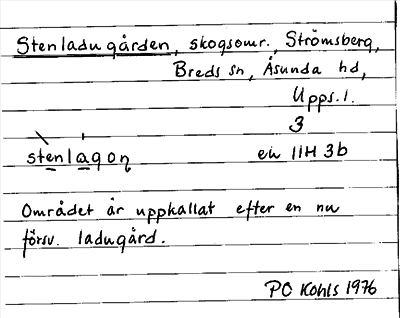 Stenladugården, skogsomr., Strömsberg,
Breds sn, Åsunda hd,
Upps. l.
3
stenlagoņ ek 11H 3b
Området är uppkallat efter en nu
försv. ladugård.
PO Kohls 1976